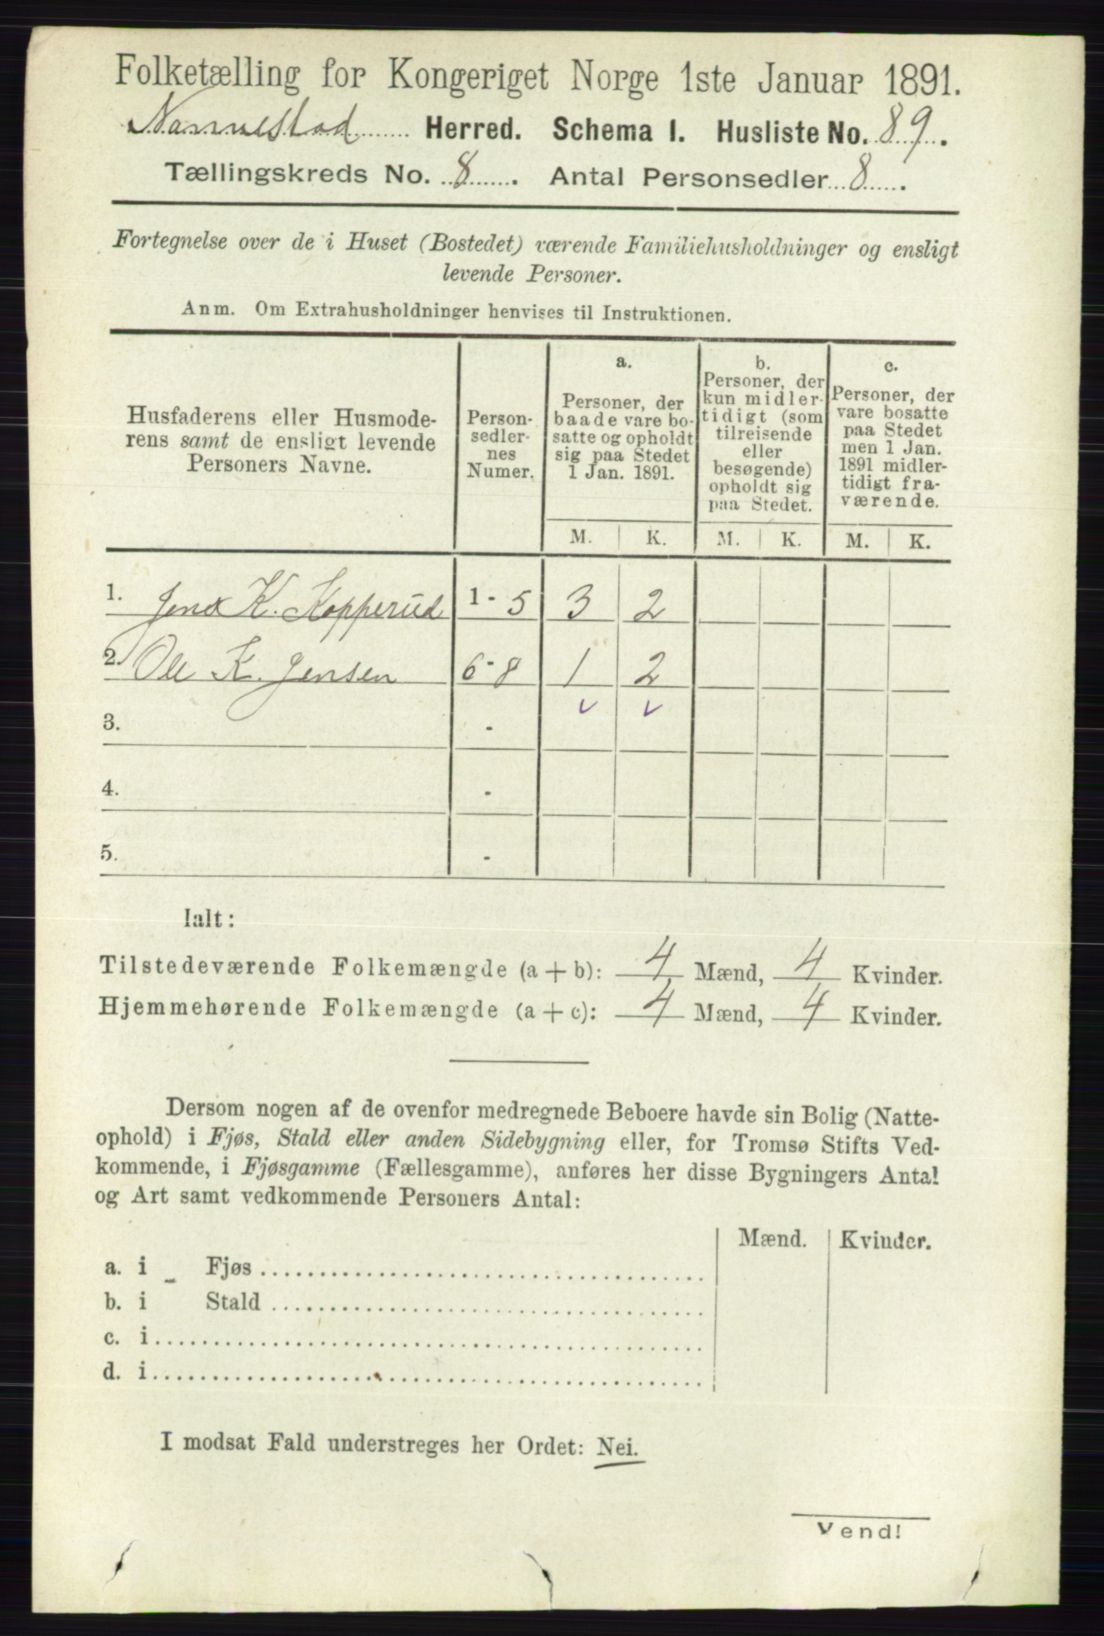 Folketælling for Kongeriget Norge 1ste Januar 1891.
Nannestad Herred. Schema I. Husliste No. 89.
Tællingskreds No. 8. Antal Personsedler 8.
Fortegnelse over de i Huset (Bostedet) værende Familiehusholdninger og ensligt
levende Personer.
Anm. Om Extrahusholdninger henvises til Instruktionen.
Husfaderens eller Husmode-
rens samt de ensligt levende
Personers Navne.
Person-
sedler-
nes
Numer.
a.
Personer, der
baade vare bo-
satte og opholdt
sig paa Stedet
1 Jan. 1891.
b.
Personer, der
kun midler-
tidigt (som
tilreisende
eller
besøgende)
opholdt sig
paa Stedet.
c.
Personer, der
vare bosatte
paa Stedet
men 1 Jan.
1891 midler-
tidigt fra-
værende.
M. K. M. K. M. K.
1. Jens K. Kopperud 1-5 3 2
2. Ole K. Jensen 6-8 1 2
3. -
4. -
5. -
Ialt:
Tilstedeværende Folkemængde (a + b): 4 Mænd, 4 Kvinder.
Hjemmehørende Folkemængde (a + c): 4 Mænd, 4 Kvinder.
Dersom nogen af de ovenfor medregnede Beboere havde sin Bolig (Natte-
ophold) i Fjøs, Stald eller anden Sidebygning eller, for Tromsø Stifts Ved-
kommende, i Fjøsgamme (Fællesgamme), anføres her disse Bygningers Antal
og Art samt vedkommende Personers Antal:
Mænd. Kvinder.
a. i - Fjøs
b. i Stald
c. i
d. i
I modsat Fald understreges her Ordet: Nei.
Vend!